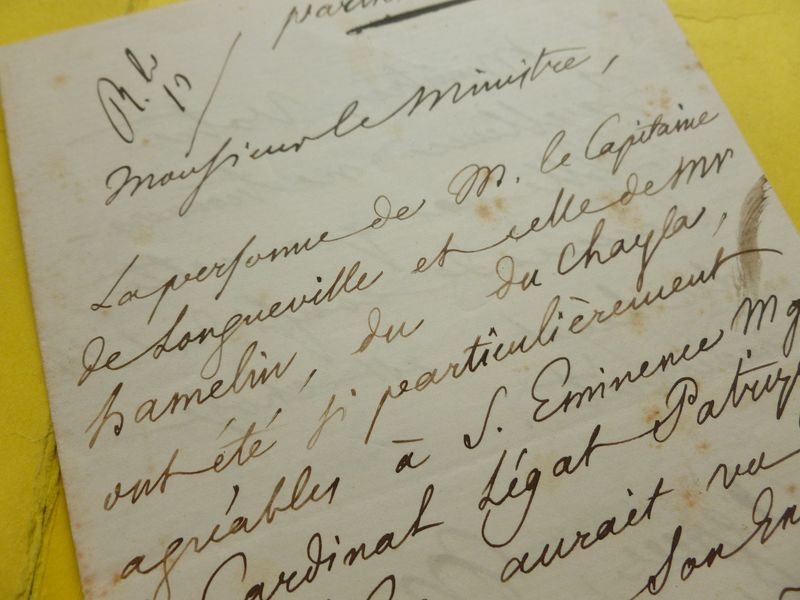 Monsieur le Ministre,
La personne de M. le Capitaine
de Longueville et celle de Mr
hamelin, du du Chayla,
ont été si particulièrement
agréables à S. Eminence Mg
Cardinal Légat Patriz
aurait vu
Son En